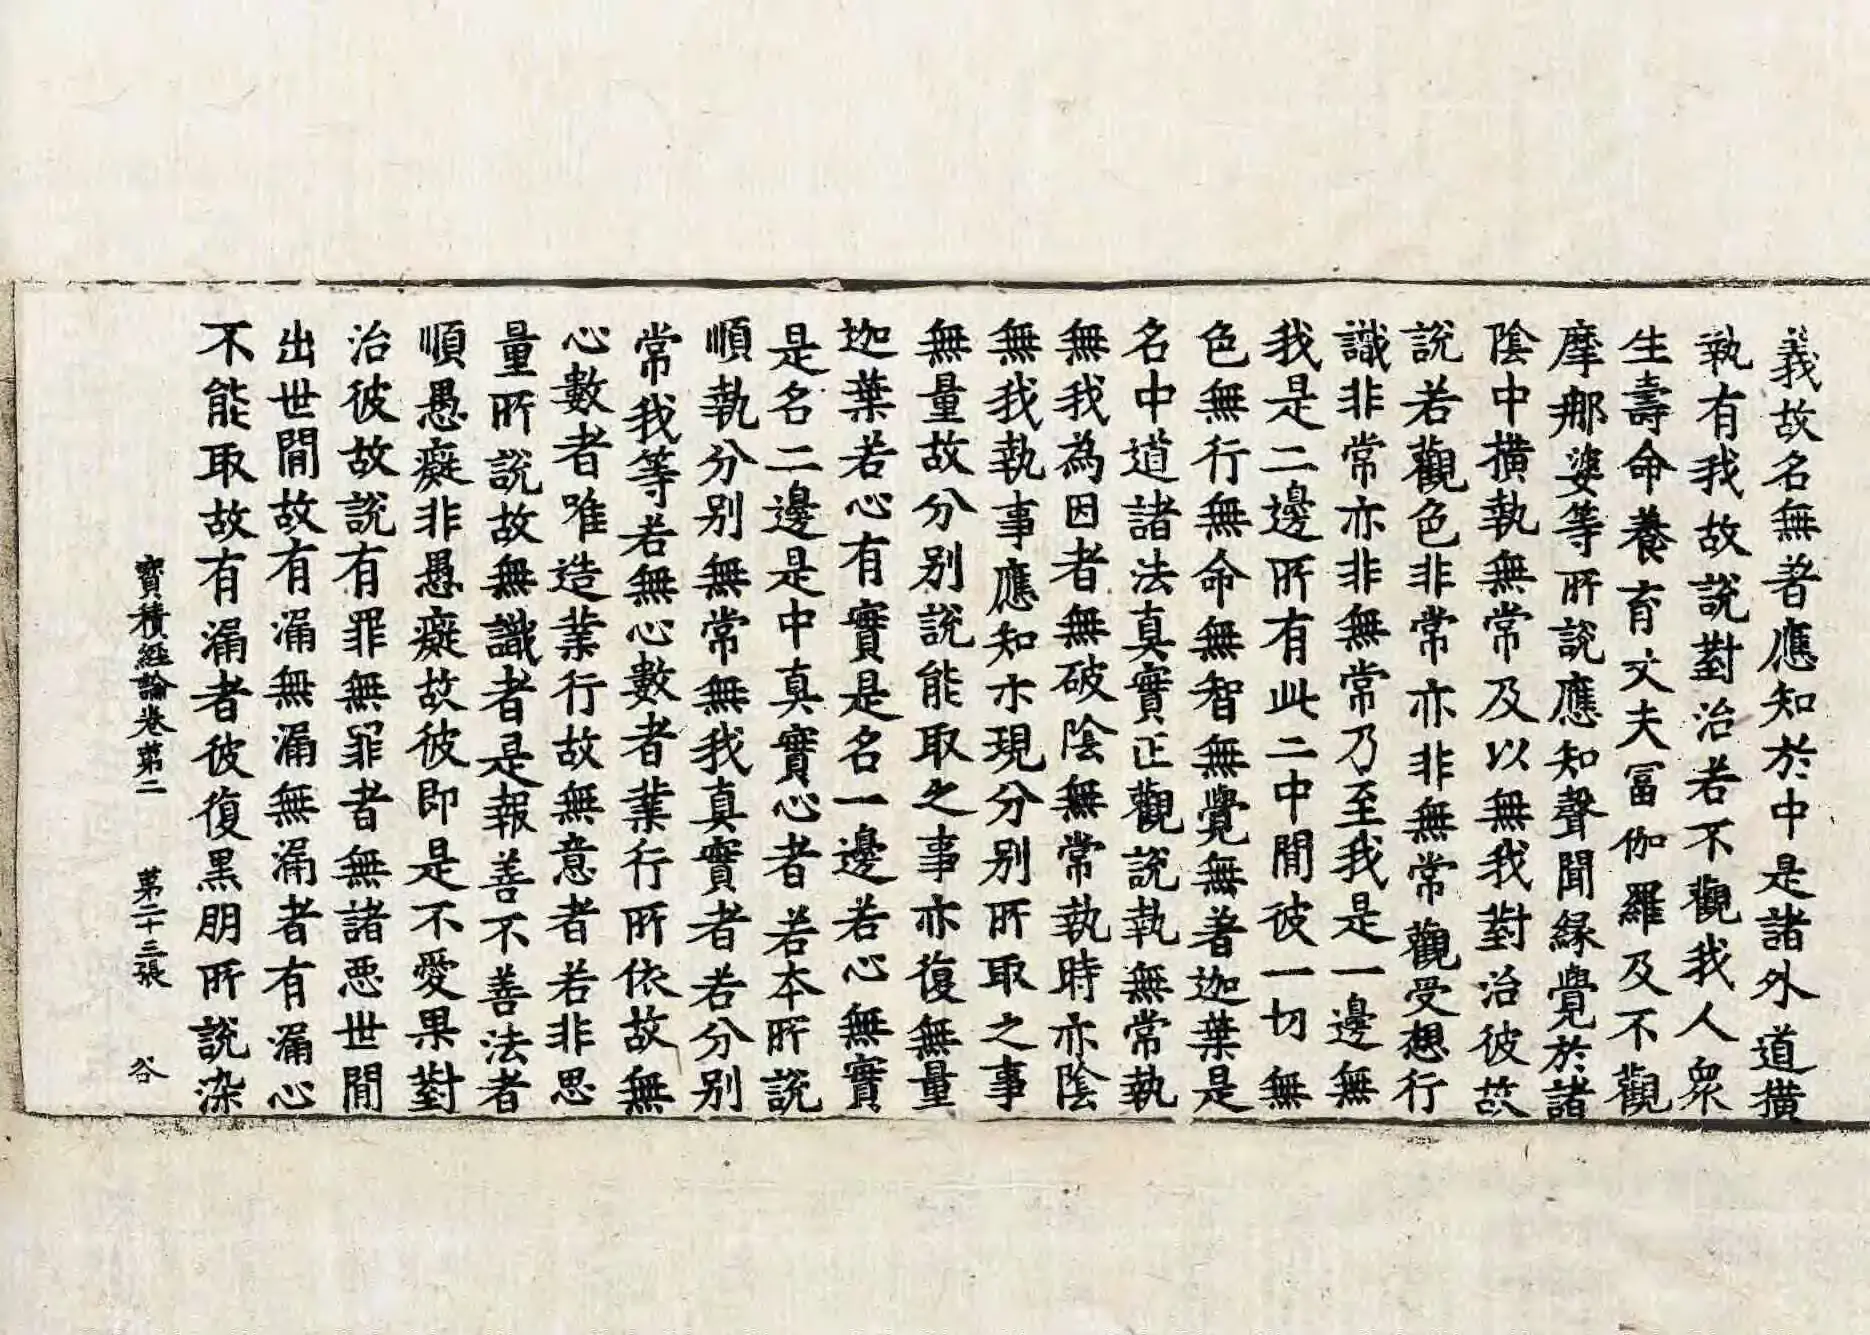 義故名無著應知於中是諸外道撗
執有我故說對治若不觀我人衆
生壽命養育丈夫冨伽羅及不觀
摩那婆等所說應知聲聞緣覺於諸
陰中撗執無常及以無我對治彼故
說若觀色非常亦非無常觀受想行
識非常亦非無常乃至我是一邊無
我是二邊所有此二中間彼一切無
色無行無命無智無覺無著迦葉是
名中道諸法真實正觀說執無常執
無我為因者無破陰無常執時亦陰
無我執事應知亦現分別所取之事
無量故分別說能取之事亦復無量
迦葉若心有實是名一邊若心無實
是名二邊是中真實心者若本所說
順執分別無常無我真實者若分別
常我等若無心數者業行所依故無
心數者唯造業行故無意者若非思
量所說故無識者是報善不善法者
順愚癡非愚癡故彼即是不愛果對
治彼故說有罪無罪者無諸惡世間
出世間故有漏無漏無漏者有漏心
不能取故有漏者彼復黑朋所說染
寳積經論卷第二 第二十三張 谷